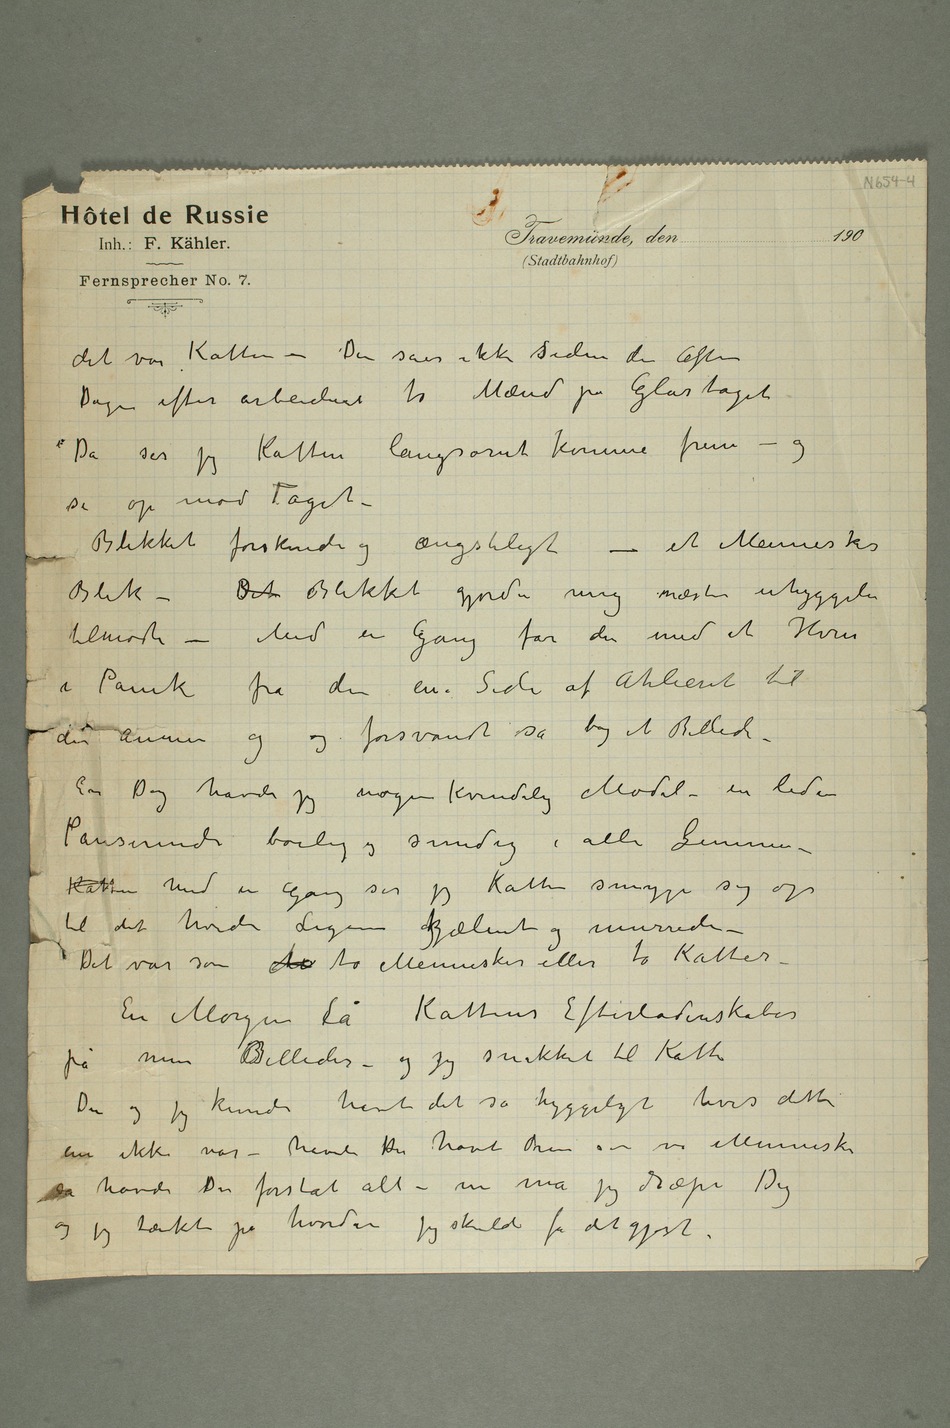 N654-4
Hôtel de Russie
Inh.: F. Kähler.
Fernsprecher No. 7.
Travemünde, den 190
(Stadtbahnhof)
det var Katten – Den såes ikke siden den Aften
Dagen efter arbeidet to Mænd på Glastaget
Da ser jeg Katten langsomt komme frem – og
se op mod Taget –
Blikket forskende og ængsteligt — et Menneskes
Blik – Det Blikket gjorde mig næsten uhyggelig
tilmode — Med en Gang får den med et Hvin
i Panik fra den ene Side af Atelieret til
den annen og og forsvandt så bag et Billede –
En Dag havde jeg nøgen Kvindelig Model – en leden
Panserinde bøielig og smidig i alle Lemmer –
Katten Med en Gang ser jeg Katten smyge sig op
til det hvide Legeme kjælent og murrede –
Det var som to Mennesker eller to Katter –
En Morgen Lå Kattens Efterladenskaber
på mine Billeder – og jeg snakket til Katten
Du og jeg kunde havt det så hyggeligt hvis dette
ene ikke var – havde Du havt som vi Mennesker
så havde Du forståt alt – nu må jeg dræpe Dig
og jeg tænkte på hvordan jeg skulde få det gjort.